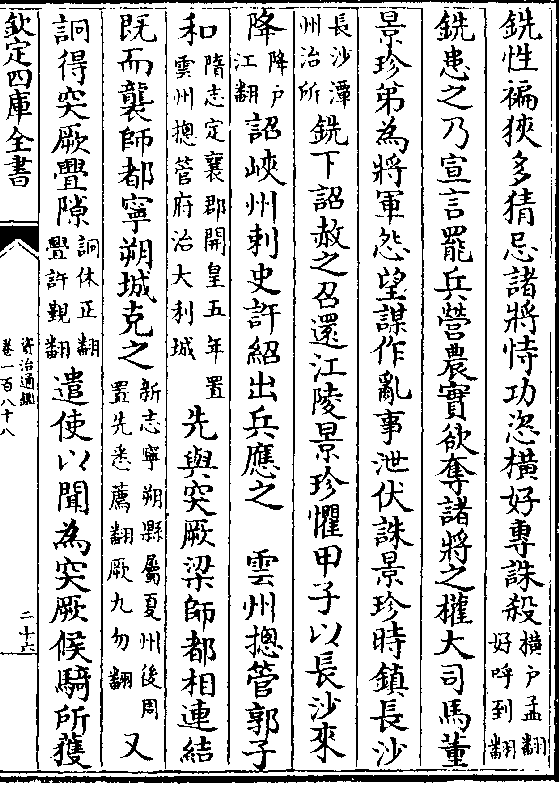 銑性褊狹多猜忌諸將恃功恣橫好專誅殺橫户孟翻好呼到翻
銑患之乃宣言罷兵營農實欲奪諸將之權大司馬董
景珍弟為將軍怨望謀作亂事泄伏誅景珍時鎮長沙
長沙潭州治所銑下詔赦之召還江陵景珍懼甲子以長沙來
降降户江翻詔峽州刺史許紹出兵應之　雲州摠管郭子
和隋志定襄郡開皇五年置雲州摠管府治大利城先與突厥梁師都相連結
既而襲師都寧朔城克之新志寧朔縣屬夏州後周置先悉薦翻厥九勿翻又
詗得突厥舋隙詗休正翻舋許覲翻遣使以聞為突厥候騎所獲
欽定四庫全書
資治通鑑
卷一百八十八
二十六